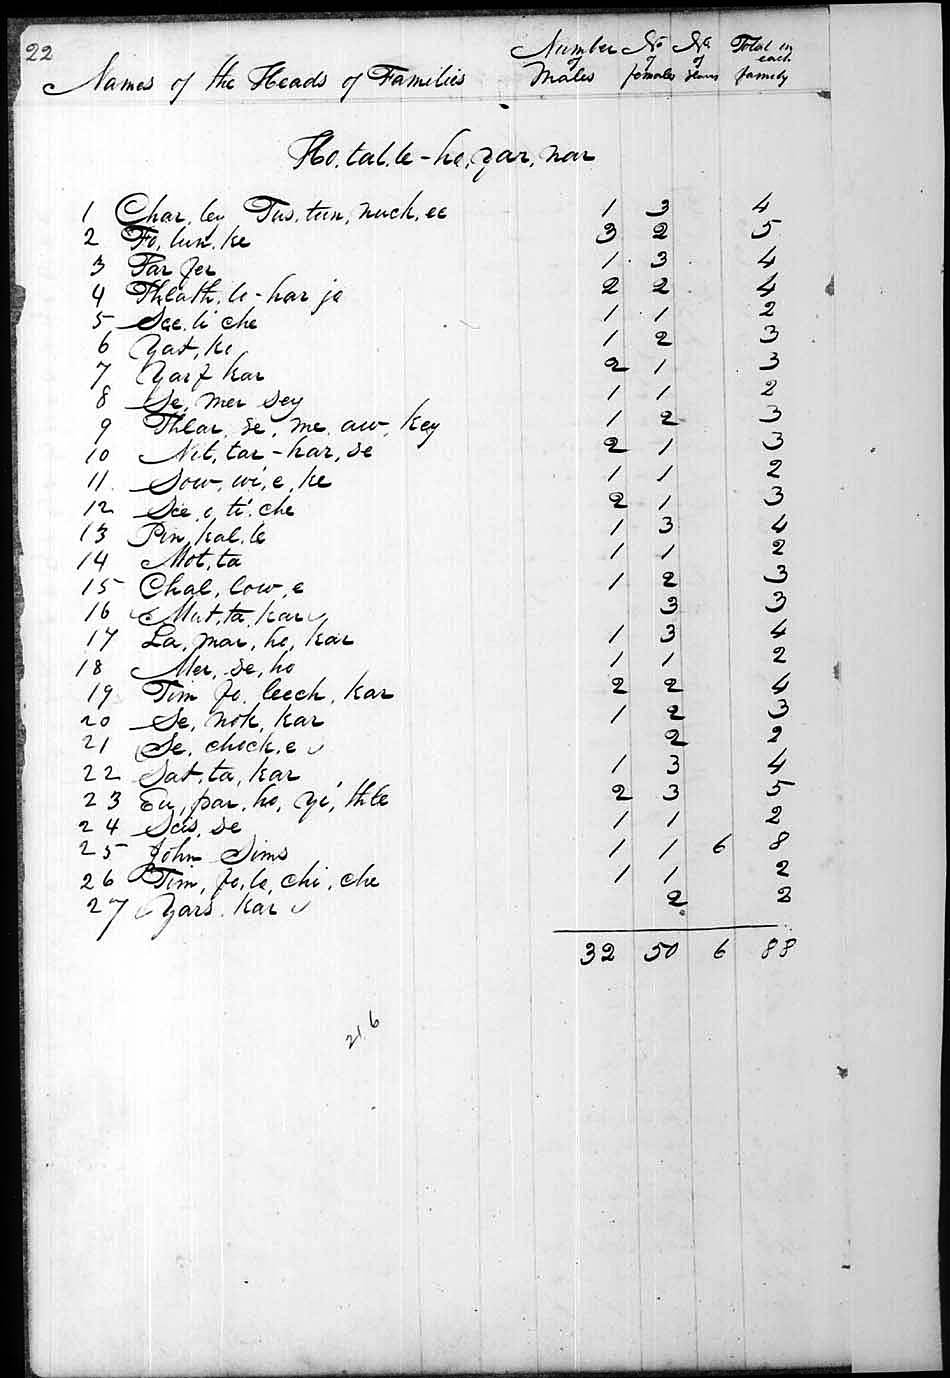 22
Names of the Heads of Families Number of Males No of females No. of slaves Total in each family
Ho.tal.le-ho,yar,nar
1 Char,ley Tus.tun,nuck,ee 1 3 4
2 Fo,lun.ke 3 2 5
3 Par fer 1 3 4
4 Thlath.le-har jo 2 2 4
5 See.li che 1 1 2
6 Yat,ke 1 2 3
7 Yarf kar 2 1 3
8 Se, mer sey 1 1 2
9 Thlar, se, me, aw, key 1 2 3
10 Nit,tar-har,se 2 1 3
11. Sow,wi,e,ke 1 1 2
12 See,o,ti.che 2 1 3
13 Pin,kal.le 1 3 4
14 Mot,ta 1 1 2
15 Chal,low,e 1 2 3
16 Mut,ta,kar 3 3
17 La,mar,ho,kar 1 3 4
18 Mer,se,ho 1 1 2
19 Tim fo.leech,kar 2 2 4
20 Se,nok,kar 1 2 3
21 Se,chock.e 2 2
22 Sat,ta,kar 1 3 4
23 Eu,par,ho,yi,thle 2 3 5
24 Scis,se 1 1 2
25 John Sims 1 1 6 8
26 Tim,fo,le,chi,che 1 1 2
27 Yars.kar 2 2
32 50 6 88
21.6